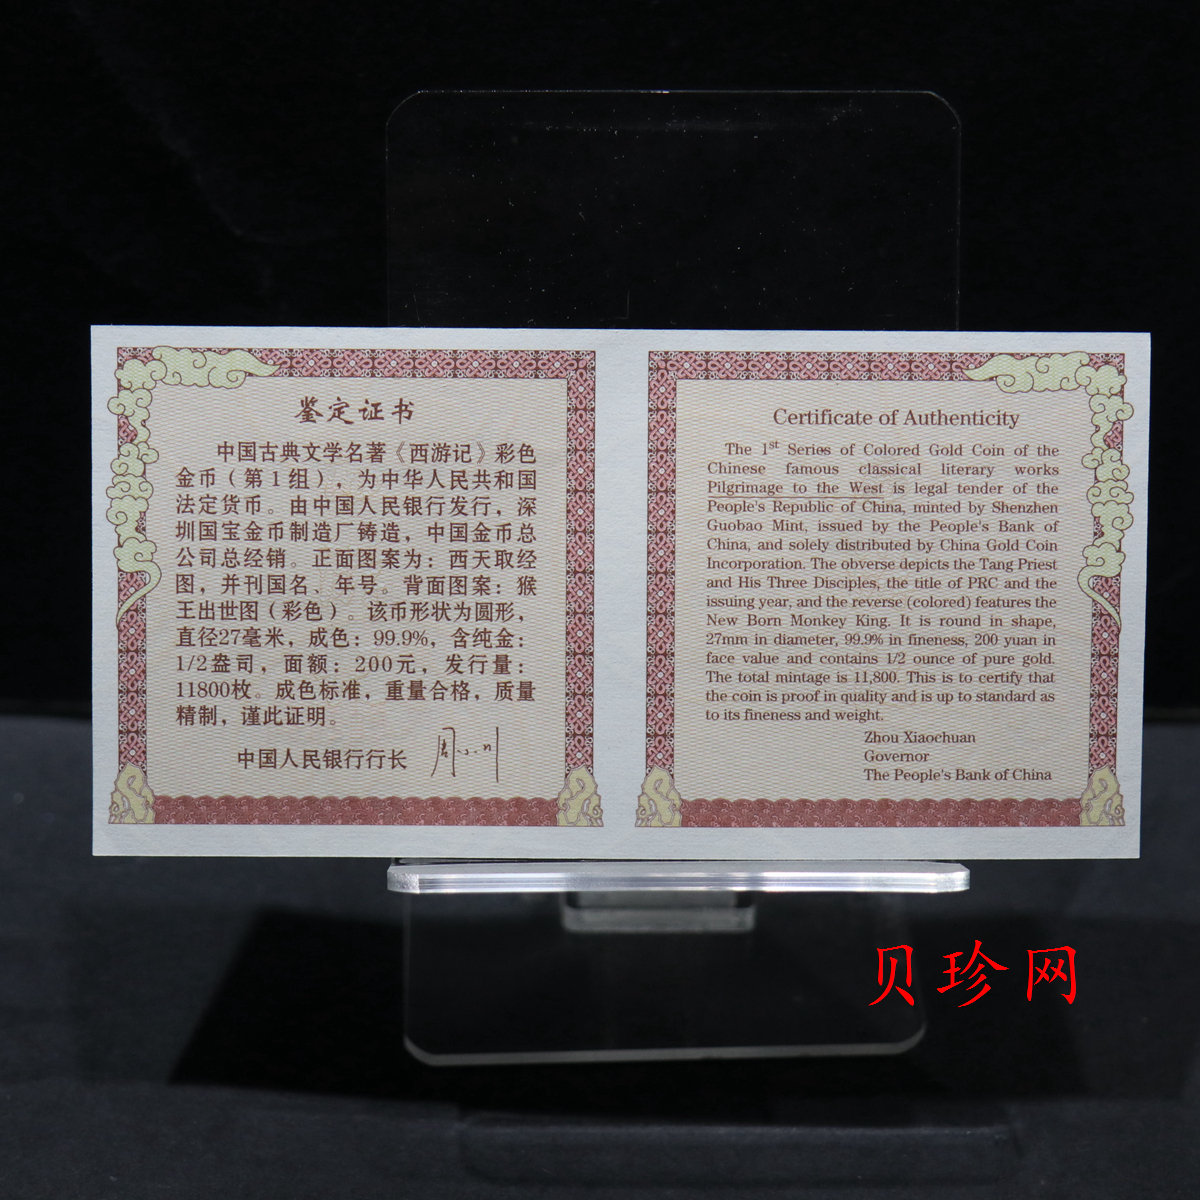 鉴定证书
中国古典文学名著《西游记》彩色
金币（第1组），为中华人民共和国
法定货币。由中国人民银行发行，深
圳国宝金币制造厂铸造，中国金币总
公司总经销。正面图案为：西天取经
图，并刊国名、年号。背面图案：猴
王出世图（彩色）。该币形状为圆形，
直径27毫米，成色：99.9%，含纯金：
1/2盎司，面额：200元，发行量：
11800枚。成色标准，重量合格，质量
精制，谨此证明。
中国人民银行行长 周小川
Certificate of Authenticity
The 1st Series of Colored Gold Coin of the
Chinese famous classical literary works
Pilgrimage to the West is legal tender of the
People's Republic of China, minted by Shenzhen
Guobao Mint, issued by the People's Bank of
China, and solely distributed by China Gold Coin
Incorporation. The obverse depicts the Tang Priest
and His Three Disciples, the title of PRC and the
issuing year, and the reverse (colored) features the
New Born Monkey King. It is round in shape,
27mm in diameter, 99.9% in fineness, 200 yuan in
face value and contains 1/2 ounce of pure gold.
The total mintage is 11,800. This is to certify that
the coin is proof in quality and is up to standard as
to its fineness and weight.
Zhou Xiaochuan
Governor
The People's Bank of China
贝珍网